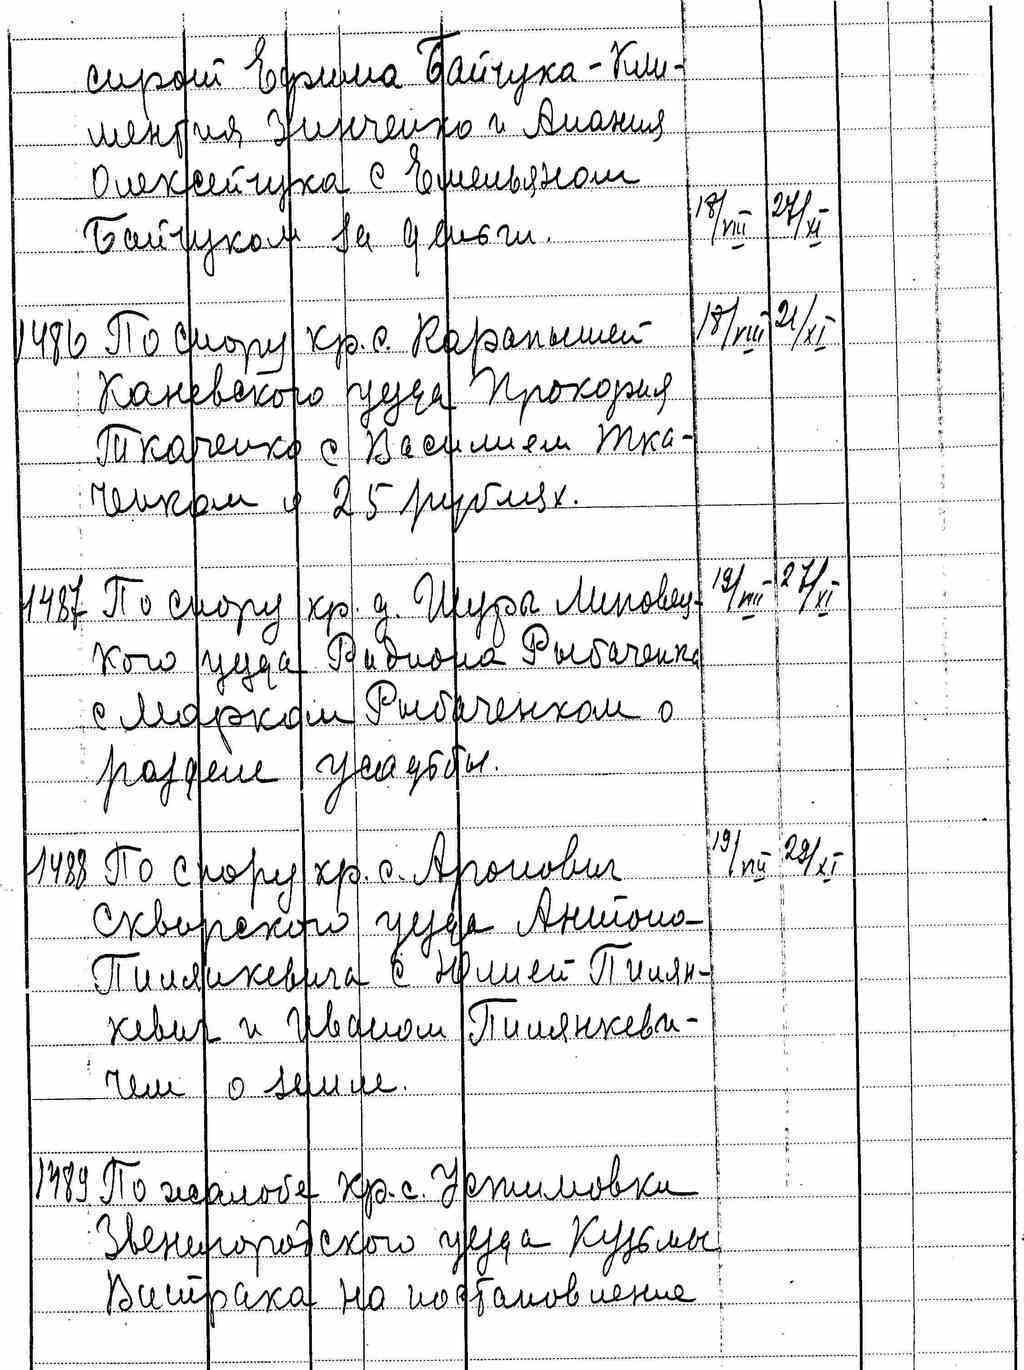 сирот Ефима Байчука - Кли-
ментия Зинченко и Анания
Олексейчука с Емельяном
Байчуком за деньги. 18/VIII 27/XI
1486 По спору кр. с. Карапышей 18/VIII 21/XI
Каневского уезда Прокофия
Ткаченко с Василием Тка-
ченком о 25 рублях.
1487 По спору кр. д. Шуры Липовец- 19/VIII 27/XI
кого уезда Родиона Рыбаченка
с Марком Рыбаченком о
разделе усадьбы.
1488 По спору кр. с. Агопович 19/VIII 29/XI
Сквирского уезда Антона
Пилянкевича с Юлией Пилян-
кевич и Иваном Пилянкеви-
чем о земле.
1489 По жалобе кр. с. Устимовки
Звенигородского уезда Кузьмы
на постановление